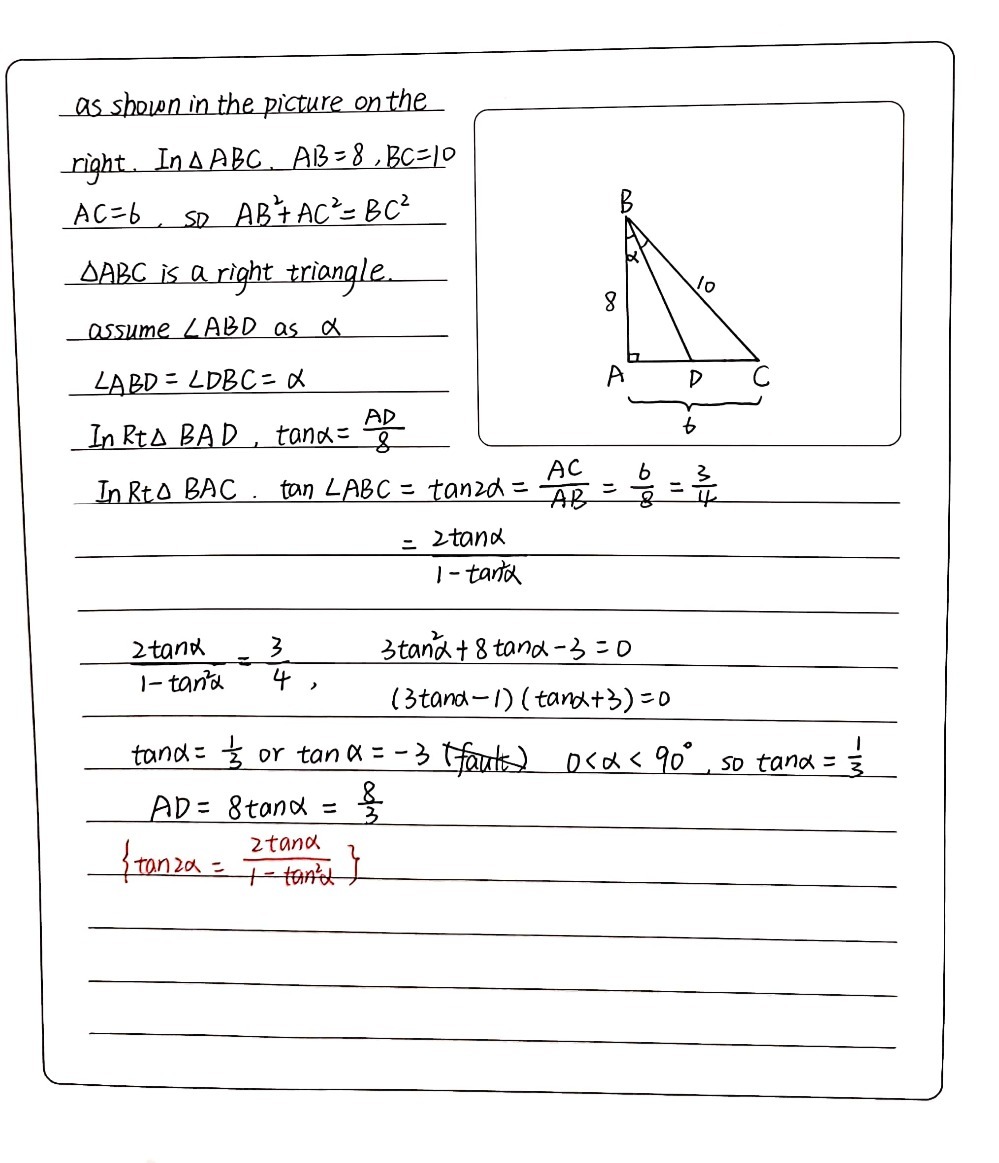 as shown in the picture on the
right. In △ABC. AB=8, BC=10
AC=6, so AB²+AC²=BC²
△ABC is a right triangle.
assume ∠ABD as α
∠ABD = ∠DBC = α
In Rt△ BAD, tanα = AD/8
In Rt△ BAC. tan ∠ABC = tan2α = AC/AB = 6/8 = 3/4
= 2tanα/(1-tan²α)
2tanα/(1-tan²α) = 3/4, 3tan²α+8tanα-3=0
(3tanα-1)(tanα+3)=0
tanα = 1/3 or tanα = -3 (fault) 0<α<90°, so tanα = 1/3
AD = 8tanα = 8/3
{tan2α = 2tanα/(1-tan²α)}
B
α
8
10
A
D
C
6